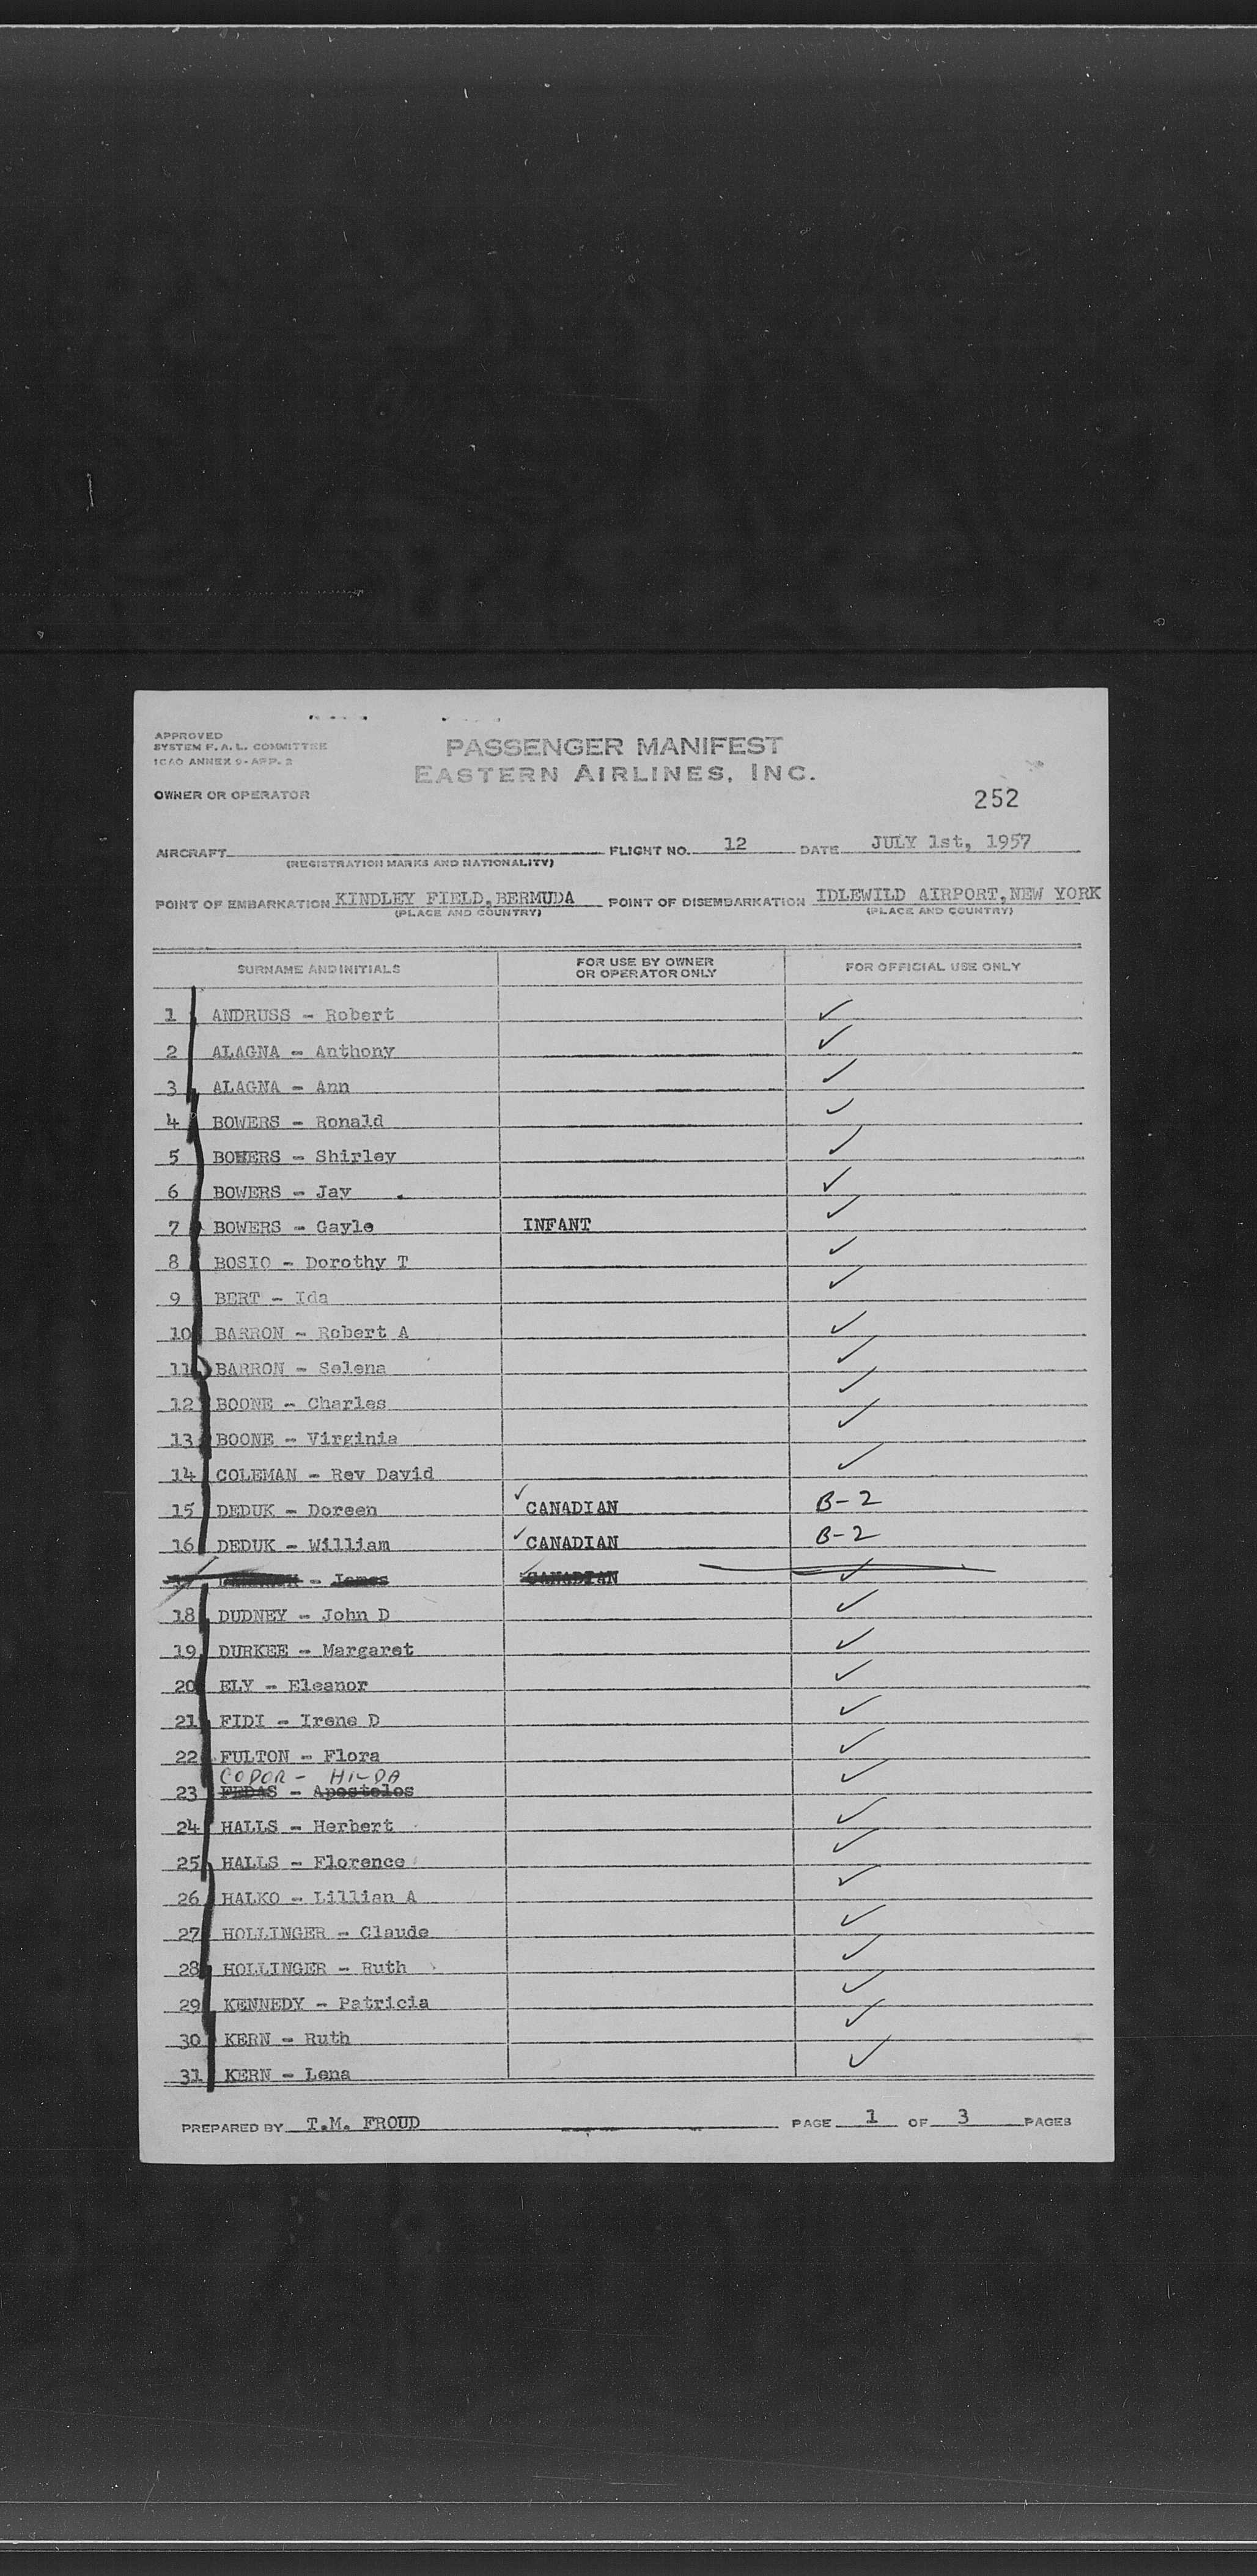 APPROVED
SYSTEM F. A. L. COMMITTEE
ICAO ANNEX 9-APP. 2
PASSENGER MANIFEST
EASTERN AIRLINES, INC.
OWNER OR OPERATOR
252
AIRCRAFT FLIGHT NO. 12 DATE JULY 1st, 1957
(REGISTRATION MARKS AND NATIONALITY)
POINT OF EMBARKATION KINDLEY FIELD, BERMUDA POINT OF DISEMBARKATION IDLEWILD AIRPORT, NEW YORK
(PLACE AND COUNTRY) (PLACE AND COUNTRY)
SURNAME AND INITIALS FOR USE BY OWNER OR OPERATOR ONLY FOR OFFICIAL USE ONLY
1 ANDRUSS - Robert ✓
2 ALAGNA - Anthony ✓
3 ALAGNA - Ann ✓
4 BOWERS - Ronald ✓
5 BOWERS - Shirley ✓
6 BOWERS - Jay ✓
7 BOWERS - Gayle INFANT ✓
8 BOSIO - Dorothy T ✓
9 BERT - Ida ✓
10 BARRON - Robert A ✓
11 BARRON - Selena ✓
12 BOONE - Charles ✓
13 BOONE - Virginia ✓
14 COLEMAN - Rev David ✓
15 DEDUK - Doreen ✓ CANADIAN B-2
16 DEDUK - William ✓ CANADIAN B-2
- James CANADIAN ✓
18 DUDNEY - John D ✓
19 DURKEE - Margaret ✓
20 ELY - Eleanor ✓
21 FIDI - Irene D ✓
22 FULTON - Flora ✓
CODOR - HILDA
23 FEDAS - Apostolos ✓
24 HALLS - Herbert ✓
25 HALLS - Florence ✓
26 HALKO - Lillian A ✓
27 HOLLINGER - Claude ✓
28 HOLLINGER - Ruth ✓
29 KENNEDY - Patricia ✓
30 KERN - Ruth ✓
31 KERN - Lena ✓
PREPARED BY T.M. FROUD PAGE 1 OF 3 PAGES